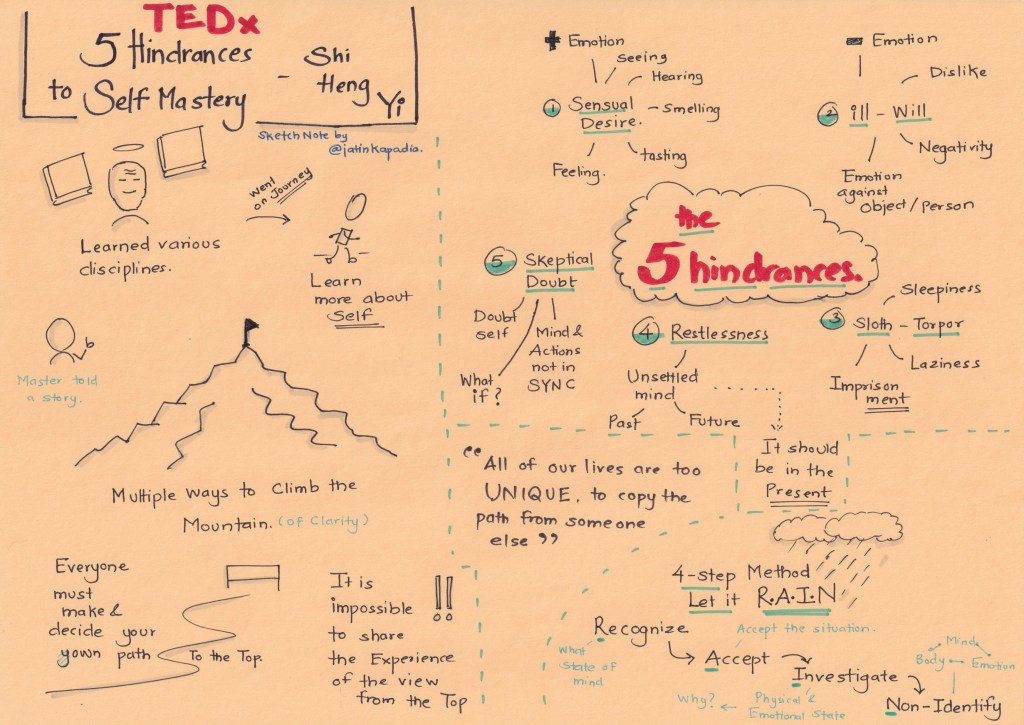 TEDx
5 Hindrances
to Self Mastery
- Shi
Heng
Yi
Sketch Note by
@jatinkapadia.
Learned various
disciplines.
Went
on Journey
Learn
more about
Self
Master told
a story.
Multiple ways to Climb the
Mountain. (Of Clarity)
Everyone
must
make &
decide your
yown path
To the Top
It is
impossible
to share
the Experience
of the view
from the Top
!!
+ Emotion
Seeing
Hearing
1 Sensual
Desire.
Smelling
Tasting
Feeling.
- Emotion
Dislike
2 ill - Will
Negativity
Emotion
against
Object/person
the
5 hindrances.
5 Skeptical
Doubt
Doubt
self
Mind &
Actions
not in
SYNC
What
if?
4 Restlessness
Unsettled
mind
Past
Future
3 Sloth - Torpor
Sleepiness
Laziness
Imprison
ment
It should
be in the
Present
"All of our lives are too
UNIQUE, to copy the
path from someone
else"
4-step Method
Let it R.A.I.N
Recognize
What
State of
mind
Accept the situation.
Accept
Investigate
Why?
Physical &
Emotional State
Non-Identify
Mind
Body
Emotion